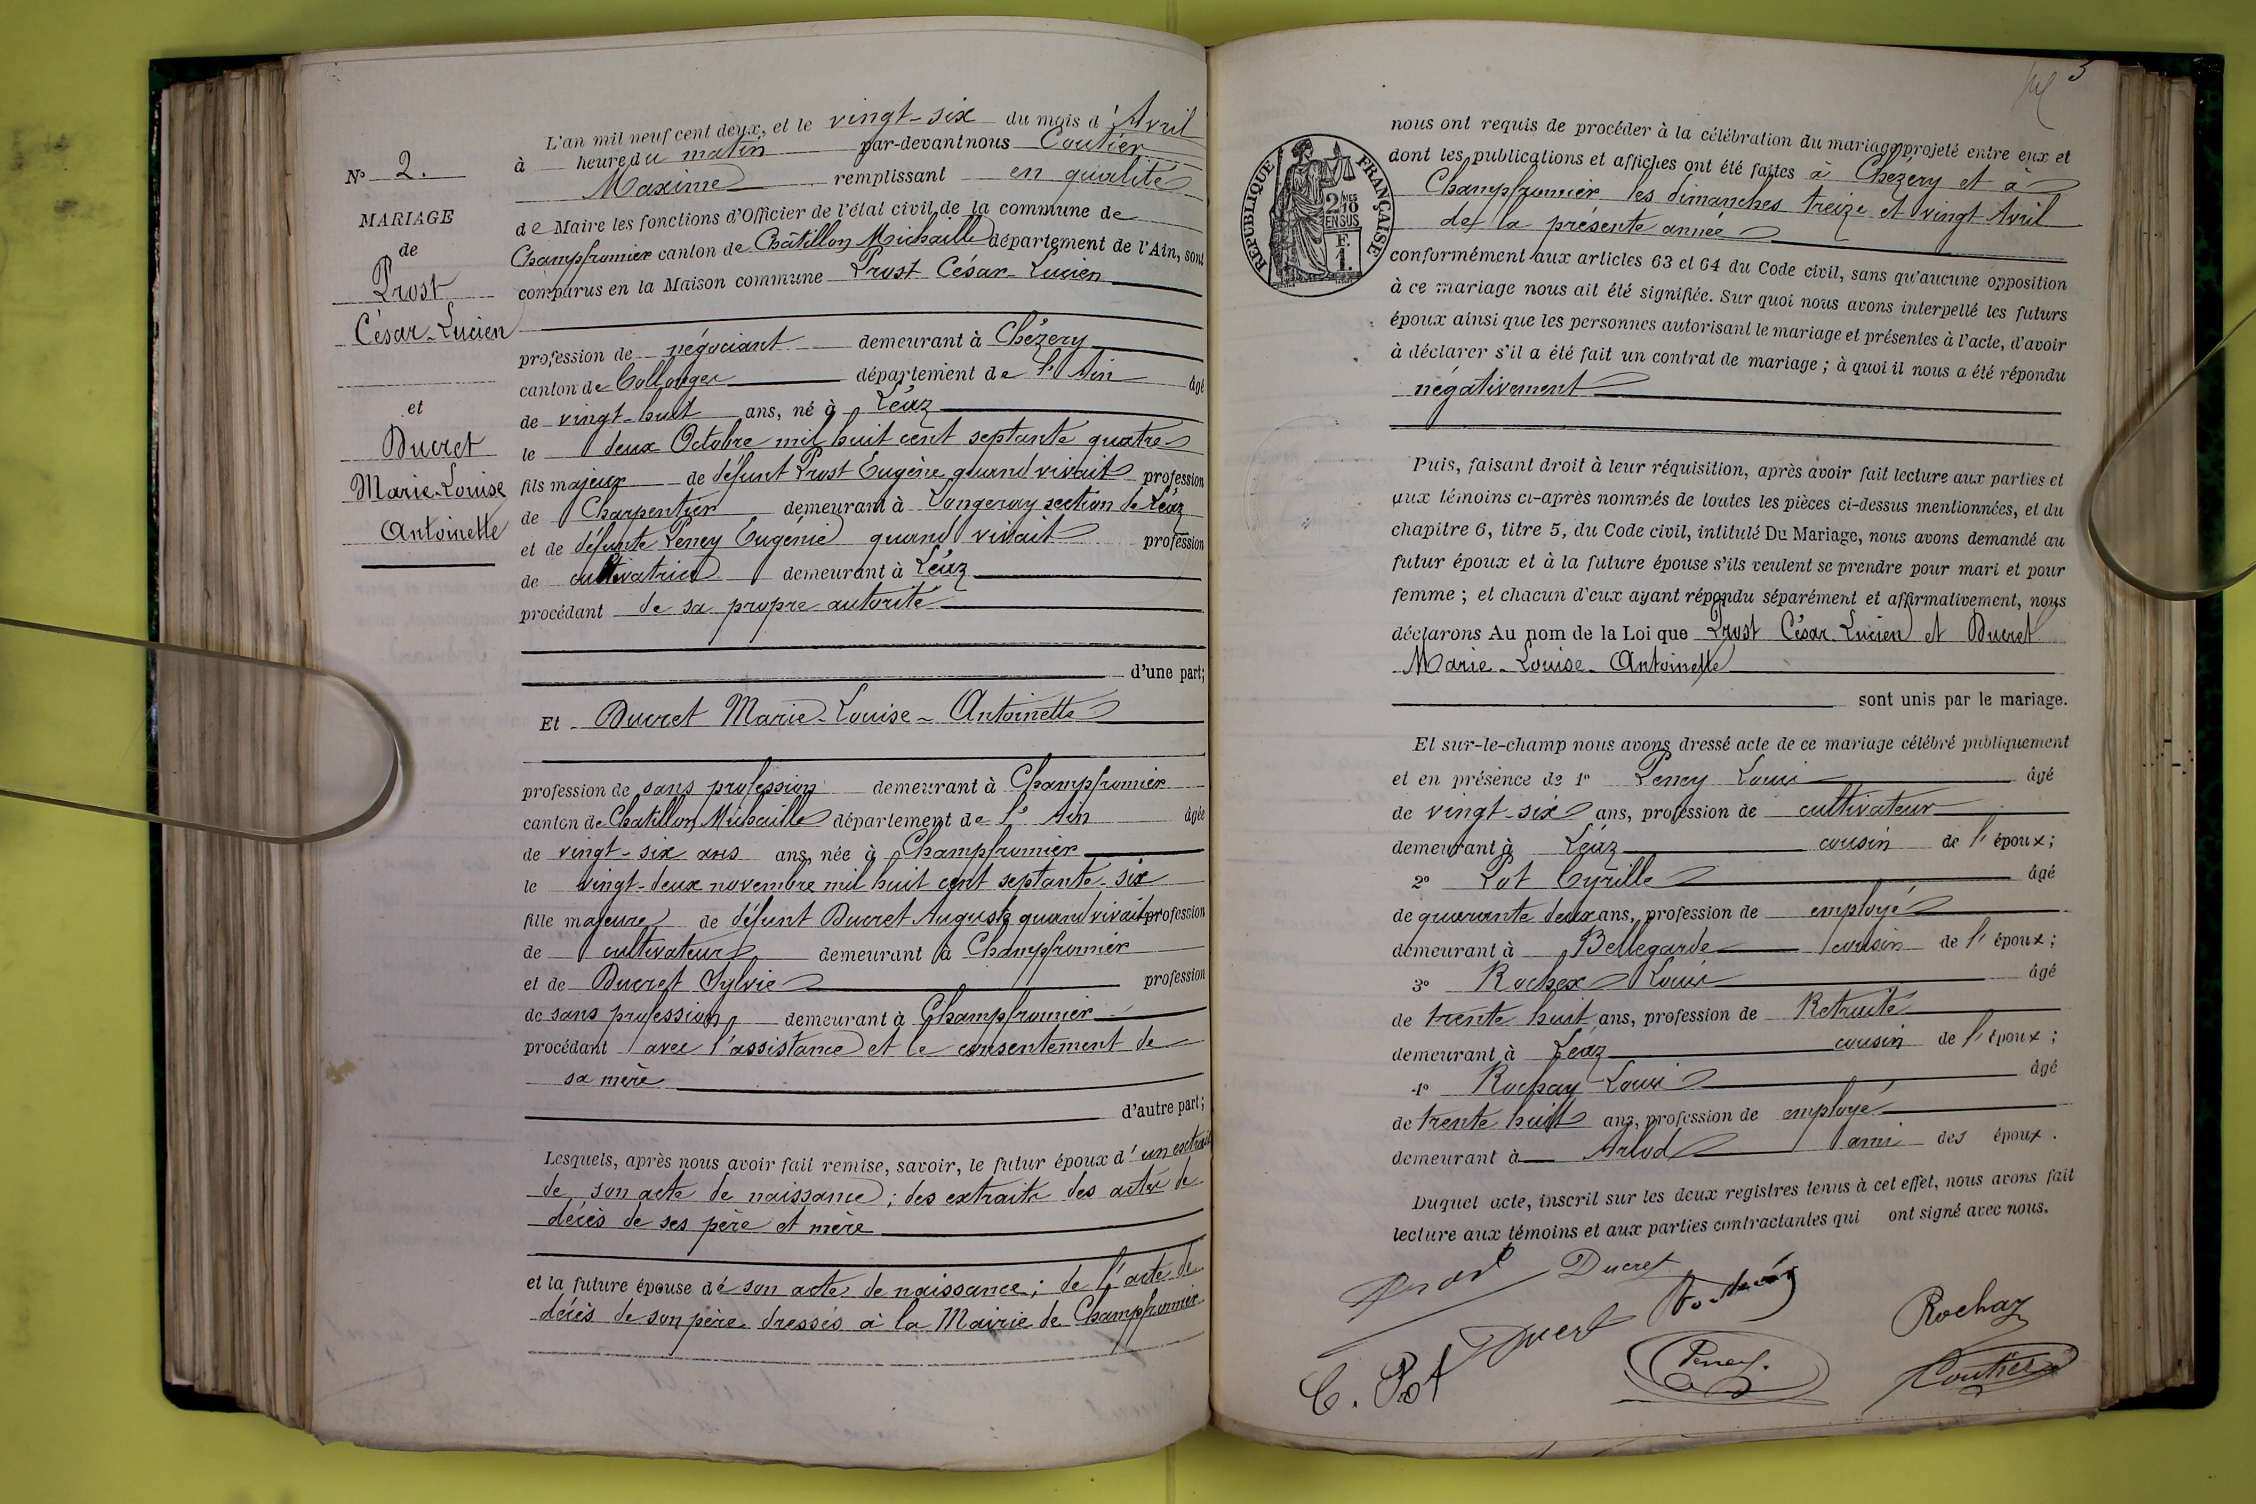 N° 2.
MARIAGE
de
Prost
César-Lucien
et
Ducret
Marie-Louise
Antoinette
L'an mil neuf cent deux, et le vingt-six du mois d'Avril
à heure du matin par-devant nous Coutier
Maxime remplissant en qualité
de Maire les fonctions d'Officier de l'état civil de la commune de
Champfromier canton de Châtillon Michaille département de l'Ain, sont
comparus en la Maison commune Prost César-Lucien
profession de négociant demeurant à Chézery
canton de Collonges département de l'Ain âgé
de vingt-huit ans, né à Léaz
le deux Octobre mil huit cent septante quatre
fils majeur de défunt Prost Eugène quand vivait profession
de Charpentier demeurant à Longeray section de Léaz
et de défunte Peney Eugénie quand vivait profession
de cultivatrice demeurant à Léaz
procédant de sa propre autorité
d'une part;
Et Ducret Marie-Louise-Antoinette
profession de sans profession demeurant à Champfromier
canton de Chatillon Michaille département de l'Ain âgée
de vingt-six ans ans, née à Champfromier
le vingt-deux novembre mil huit cent septante-six
fille majeure de défunt Ducret Auguste quand vivait profession
de cultivateur demeurant à Champfromier
et de Ducret Sylvie profession
de sans profession demeurant à Champfromier
procédant avec l'assistance et le consentement de
sa mère
d'autre part;
Lesquels, après nous avoir fait remise, savoir, le futur époux d'un extrait
de son acte de naissance; des extraits des actes de
décès de ses père et mère
et la future épouse de son acte de naissance; de l'acte de
décès de son père dressés à la Mairie de Champfromier
5
RÉPUBLIQUE FRANÇAISE
2 10MES
EN SUS
F.
1.
nous ont requis de procéder à la célébration du mariage projeté entre eux et
dont les publications et affiches ont été faites à Chézery et à
Champfromier les dimanches treize et vingt Avril
de la présente année
conformément aux articles 63 et 64 du Code civil, sans qu'aucune opposition
à ce mariage nous ait été signifiée. Sur quoi nous avons interpellé les futurs
époux ainsi que les personnes autorisant le mariage et présentes à l'acte, d'avoir
à déclarer s'il a été fait un contrat de mariage; à quoi il nous a été répondu
négativement
Puis, faisant droit à leur réquisition, après avoir fait lecture aux parties et
aux témoins ci-après nommés de toutes les pièces ci-dessus mentionnées, et du
chapitre 6, titre 5, du Code civil, intitulé Du Mariage, nous avons demandé au
futur époux et à la future épouse s'ils veulent se prendre pour mari et pour
femme; et chacun d'eux ayant répondu séparément et affirmativement, nous
déclarons Au nom de la Loi que Prost César Lucien et Ducret
Marie-Louise-Antoinette
sont unis par le mariage.
Et sur-le-champ nous avons dressé acte de ce mariage célébré publiquement
et en présence de 1° Peney Louis âgé
de vingt-six ans, profession de cultivateur
demeurant à Léaz cousin de l'époux;
2° Pot Cyrille âgé
de quarante deux ans, profession de employé
demeurant à Bellegarde cousin de l'époux;
3° Rochex Louis âgé
de trente huit ans, profession de Retraité
demeurant à Léaz cousin de l'époux;
4° Rochay Louis âgé
de trente huit ans, profession de employé
demeurant à Arlod ami des époux.
Duquel acte, inscrit sur les deux registres tenus à cet effet, nous avons fait
lecture aux témoins et aux parties contractantes qui ont signé avec nous.
Prost Ducret
Rochay
Ducret
C. Pot Peney. Coutier